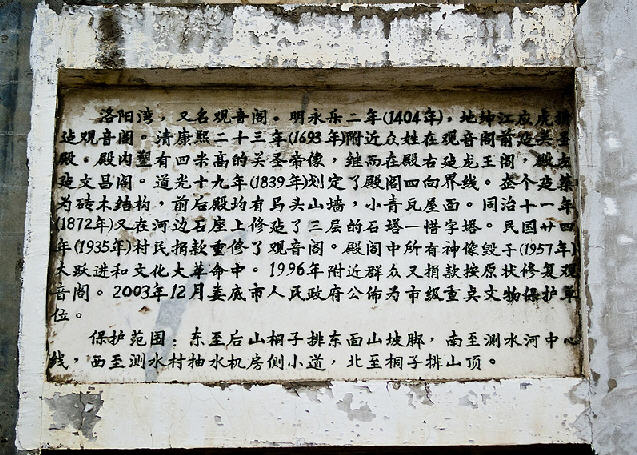 洛阳湾，又名观音阁。明永乐二年(1404年)，地绅江应虎捐
建观音阁。清康熙二十三年(1693年)附近众姓在观音阁前建关圣
殿。殿内塑有四米高的关圣帝像，继而在殿右建龙王阁，殿左
建文昌阁。道光十九年(1839年)划定了殿阁四向界线。整个建筑
为砖木结构，前后殿均有马头山墙，小青瓦屋面。同治十一年
(1872年)又在河边石座上修建了三层的石塔一惜字塔。民国廿四
年(1935年)村民捐款重修了观音阁。殿阁中所有神像毁于(1957年)
大跃进和文化大革命中。1996年附近群众又捐款按原状修复观
音阁。2003年12月娄底市人民政府公佈为市级重点文物保护单
位。
保护范围：东至后山桐子排东面山坡脚，南至测水河中心
线，西至测水村抽水机房侧小道，北至桐子排山顶。